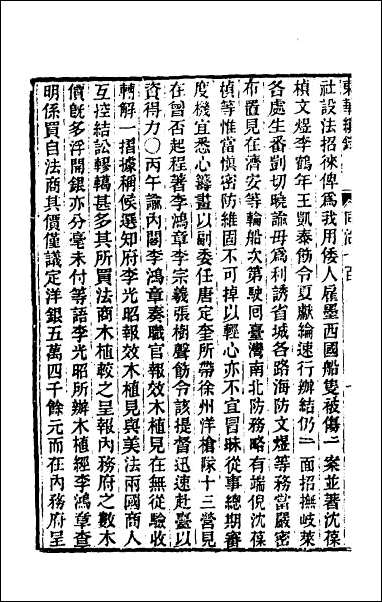 東華續錄　同治一百
社設法招徠俾爲我用倭人雇墨西國船隻被傷二案並著沈葆
楨文煜李鶴年王凱泰飭令夏獻綸速行辦結仍一面招撫岐萊
各處生番剴切曉諭毋爲利誘省城各路海防文煜等務當嚴密
布置見在濟安等輪船次第駛囘臺灣南北防務略有端倪沈葆
楨等惟當愼密防維固不可掉以輕心亦不宜冒昧從事總期審
度機宜悉心籌畫以副委任唐定奎所帶徐州洋槍隊十三營見
在曾否起程著李鴻章李宗羲張樹聲飭令該提督迅速赴臺以
資得力〇丙午諭內閣李鴻章奏職官報效木植見在無從驗收
轉解一摺據稱候選知府李光昭報效木植見與美法兩國商人
互控結訟轇轕甚多其所買法商木植較之呈報內務府之數木
價旣多浮開銀亦分毫未付等語李光昭所辦木植經李鴻章查
明係買自法商其價僅議定洋銀五萬四千餘元而在內務府呈